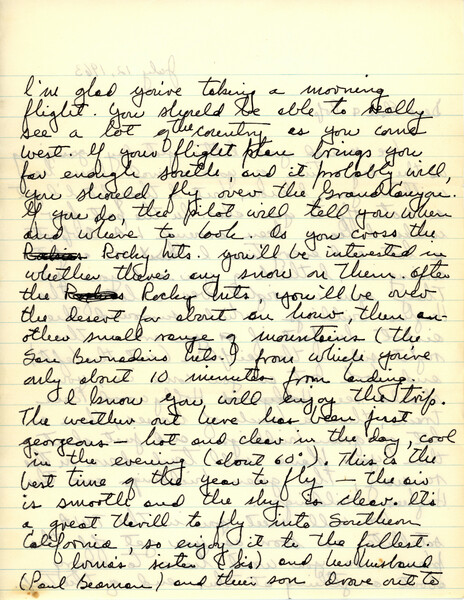 I'm glad you're taking a morning
flight. You should be able to really
see a lot of the country as you come
west. If your flight plan brings you
far enough south, and it probably will,
you should fly over the Grand Canyon.
If you do, the pilot will tell you when
and where to look. As you cross the
Rockies Rocky Mts. you'll be interested in
whether there's any snow on them. After
the Rockies Rocky Mts, you'll be over
the desert for about an hour, then an-
other small range of mountains (the
San Bernadino Mts.) from which you're
only about 10 minutes from landing.
I know you will enjoy the trip.
The weather out here has been just
georgeous – hot and clear in the day, cool
in the evening (about 60°). This is the
best time of the year to fly – the air
is smooth and the sky is clear. It's
a great thrill to fly into Southern
California, so enjoy it to the fullest.
Lorna's sister (Sis) and her husband
(Paul Beaman) and their son drove out to